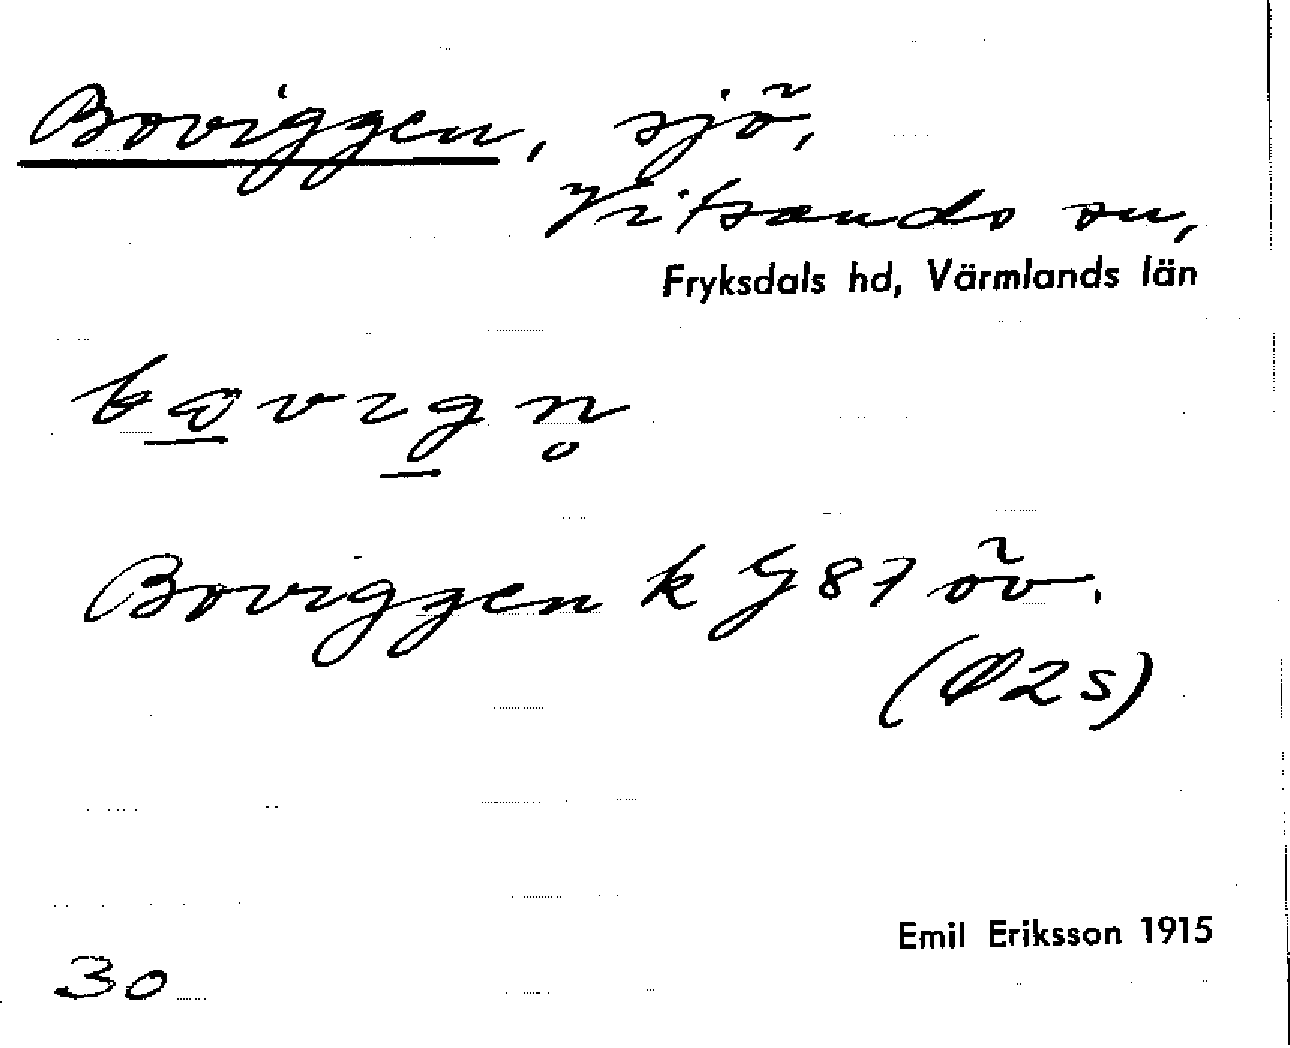 Boviggen, sjö,
Vitsands sn,
Fryksdals hd, Värmlands län
Boviggen k G 87 öv.
(Ø2s)
Emil Eriksson 1915
30